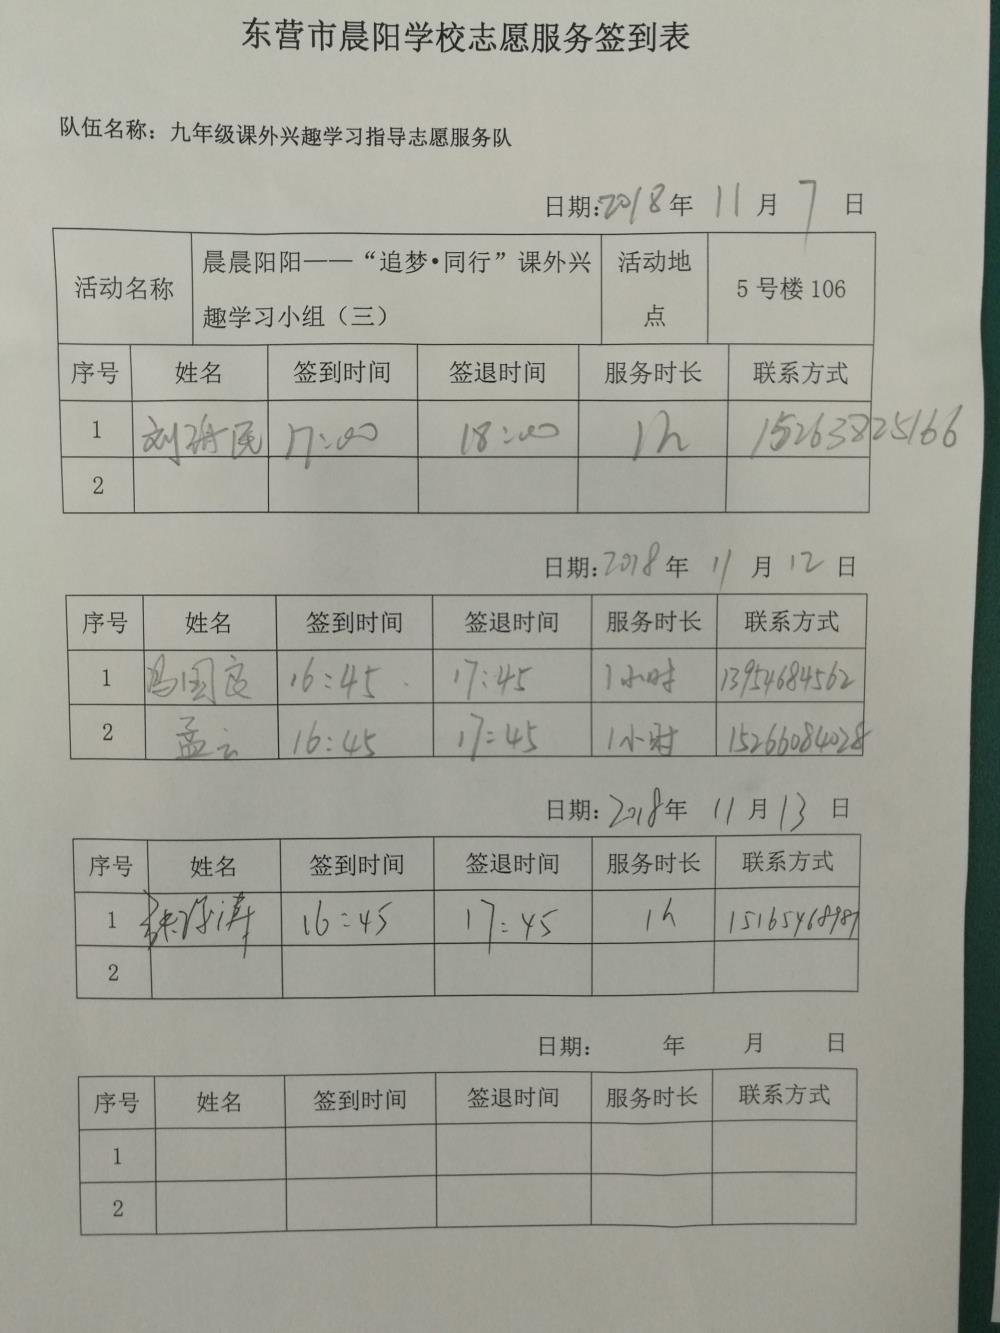 东营市晨阳学校志愿服务签到表
队伍名称：九年级课外兴趣学习指导志愿服务队
日期：2018年 11 月 7 日
活动名称 晨晨阳阳——“追梦•同行”课外兴 活动地 5号楼106
趣学习小组（三） 点
序号 姓名 签到时间 签退时间 服务时长 联系方式
1 刘 民 17:00 18:00 1h 15263825166
2
日期：2018年 11 月 12 日
序号 姓名 签到时间 签退时间 服务时长 联系方式
1 冯国良 16:45 17:45 1小时 13954684562
2 孟云 16:45 17:45 1小时 15266084028
日期：2018年 11 月 13 日
序号 姓名 签到时间 签退时间 服务时长 联系方式
1 16:45 17:45 1h 15165468987
2
日期： 年 月 日
序号 姓名 签到时间 签退时间 服务时长 联系方式
1
2